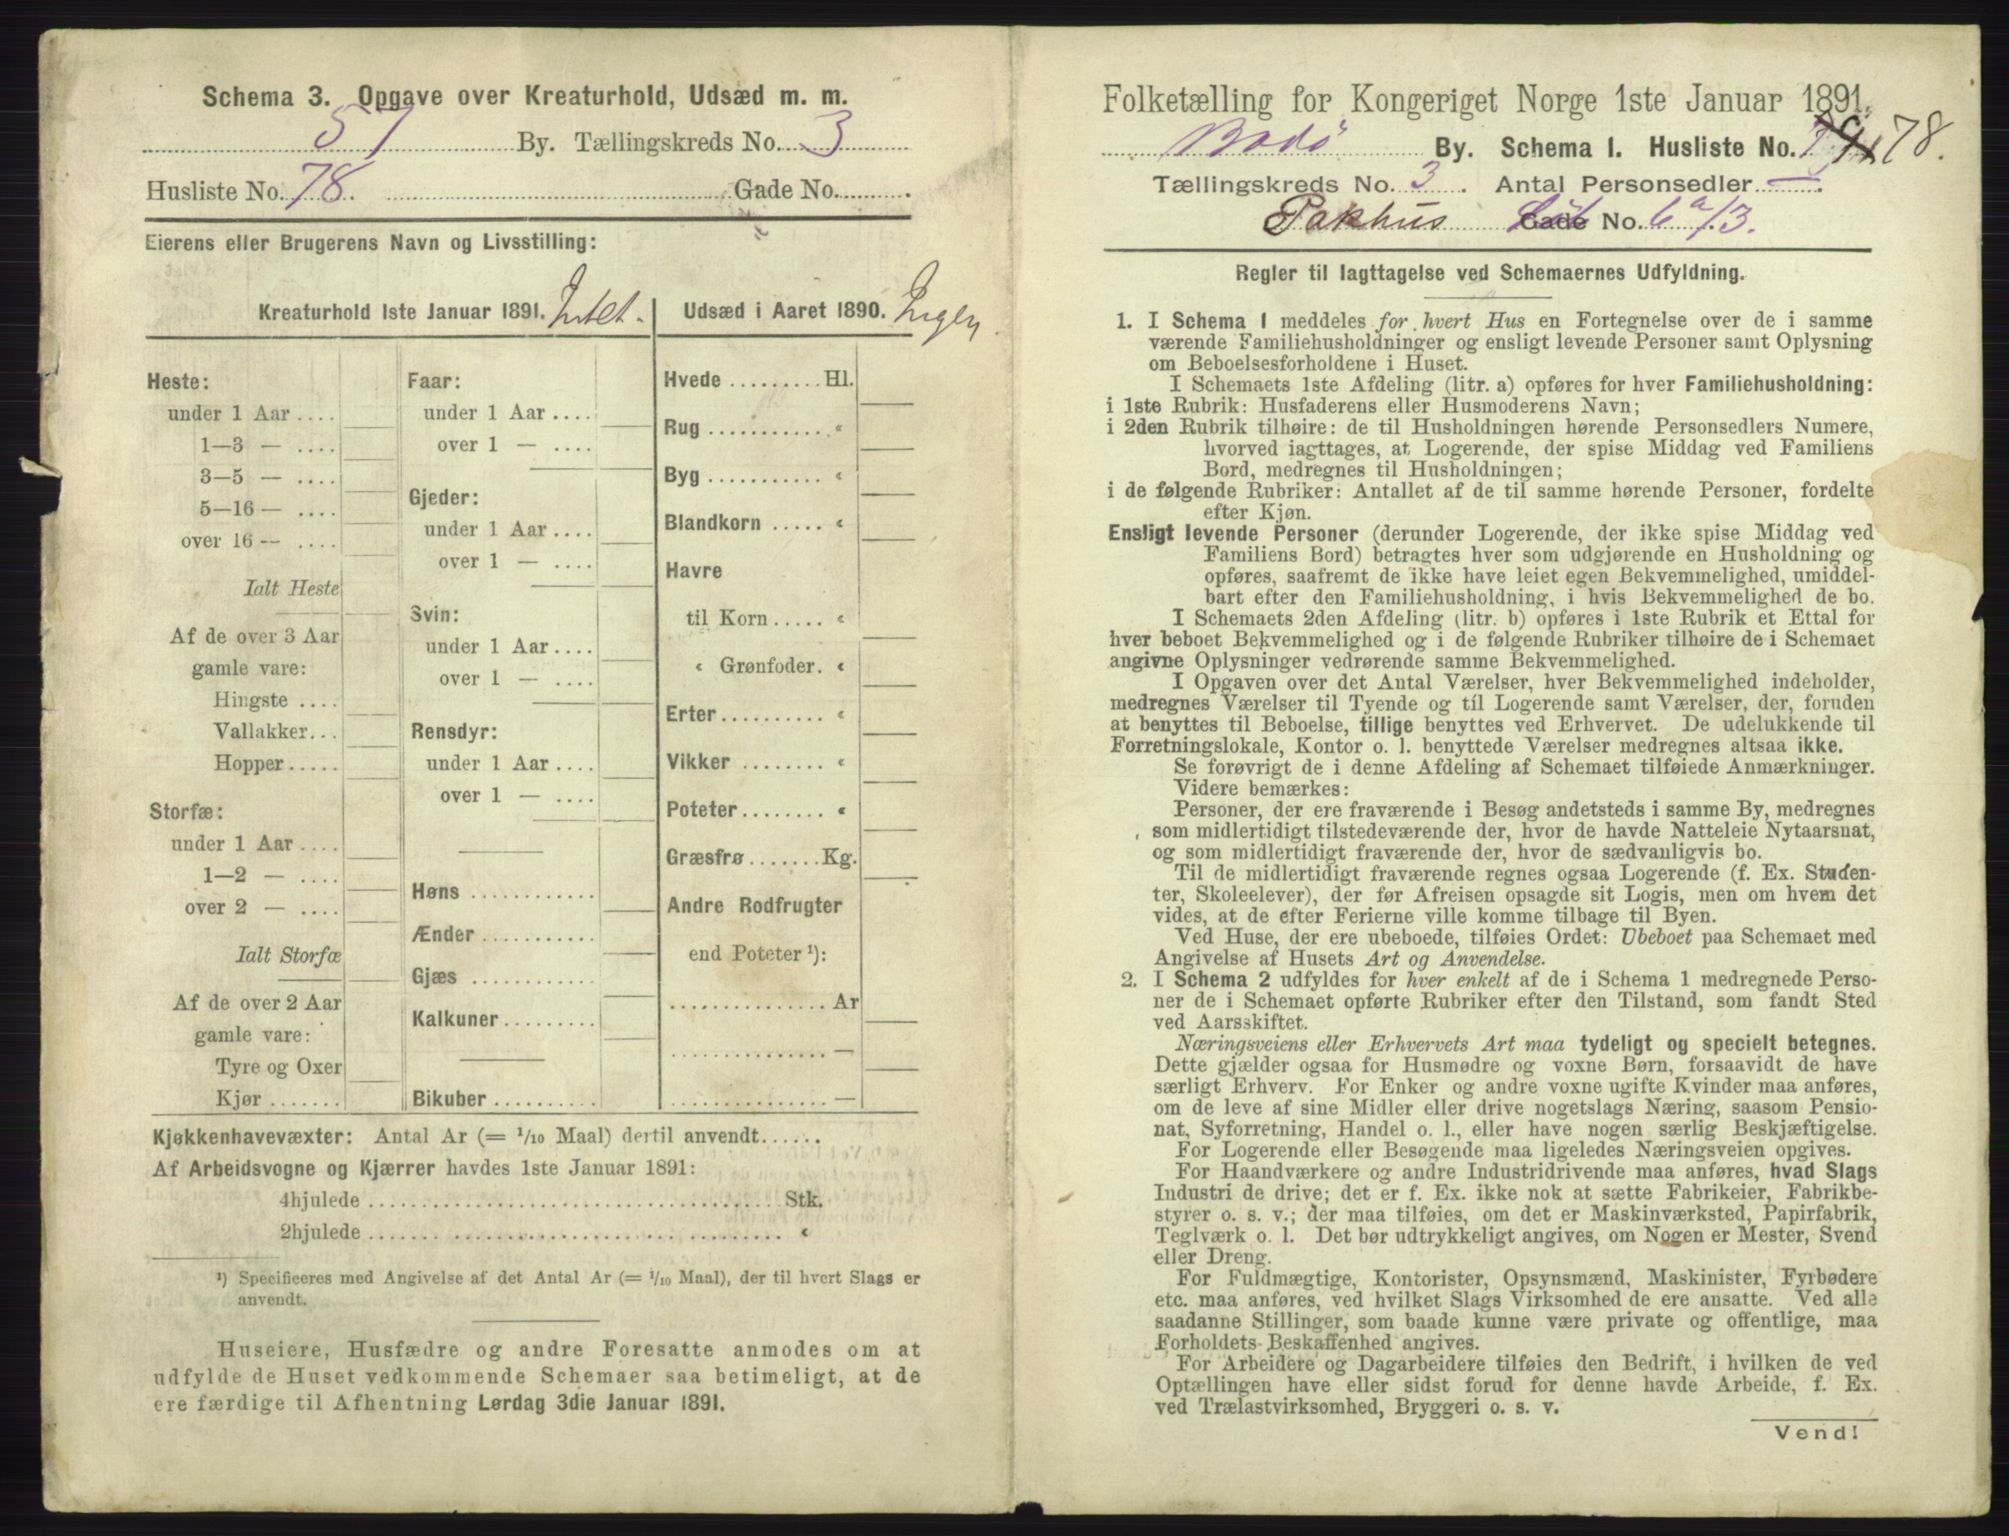 Schema 3. Opgave over Kreaturhold, Udsæd m. m.
57 By. Tællingskreds No. 3
Husliste No. 78. Gade No. .
Eierens eller Brugerens Navn og Livsstilling:
Kreaturhold 1ste Januar 1891. Intet.
Heste:
under 1 Aar ....
1—3 — ....
3—5 — ....
5—16 — ....
over 16 — ....
Ialt Heste
Af de over 3 Aar
gamle vare:
Hingste ....
Vallakker...
Hopper.....
Storfæ:
under 1 Aar ....
1—2 — ....
over 2 — ....
Ialt Storfæ
Af de over 2 Aar
gamle vare:
Tyre og Oxer
Kjør .......
Faar:
under 1 Aar ....
over 1 — ....
Gjeder:
under 1 Aar ....
over 1 — ....
Svin:
under 1 Aar ....
over 1 — ....
Rensdyr:
under 1 Aar ....
over 1 — ....
Høns ............
Ænder ...........
Gjæs ............
Kalkuner.........
Bikuber ..........
Udsæd i Aaret 1890. Ingen.
Hvede ......... Hl.
Rug ........... «
Byg ........... «
Blandkorn ..... «
Havre
til Korn ..... «
« Grønfoder. «
Erter.......... «
Vikker ........ «
Poteter........ «
Græsfrø....... Kg.
Andre Rodfrugter
end Poteter ¹):
............... Ar
............... —
............... —
Kjøkkenhavevæxter: Antal Ar (= 1/10 Maal) dertil anvendt......
Af Arbeidsvogne og Kjærrer havdes 1ste Januar 1891:
4hjulede ..................................... Stk.
2hjulede ..................................... «
¹) Specificeres med Angivelse af det Antal Ar (= 1/10 Maal), der til hvert Slags er
anvendt.
Huseiere, Husfædre og andre Foresatte anmodes om at
udfylde de Huset vedkommende Schemaer saa betimeligt, at de
ere færdige til Afhentning Lørdag 3die Januar 1891.
Folketælling for Kongeriget Norge 1ste Januar 1891.
Bodö By. Schema 1. Husliste No. 78.
Tællingskreds No. 3. Antal Personsedler —.
Pakhus Gade No. 6a/3.
Regler til Iagttagelse ved Schemaernes Udfyldning.
1. I Schema 1 meddeles for hvert Hus en Fortegnelse over de i samme
værende Familiehusholdninger og ensligt levende Personer samt Oplysning
om Beboelsesforholdene i Huset.
I Schemaets 1ste Afdeling (litr. a) opføres for hver Familiehusholdning:
i 1ste Rubrik: Husfaderens eller Husmoderens Navn;
i 2den Rubrik tilhøire: de til Husholdningen hørende Personsedlers Numere,
hvorved iagttages, at Logerende, der spise Middag ved Familiens
Bord, medregnes til Husholdningen;
i de følgende Rubriker: Antallet af de til samme hørende Personer, fordelte
efter Kjøn.
Ensligt levende Personer (derunder Logerende, der ikke spise Middag ved
Familiens Bord) betragtes hver som udgjørende en Husholdning og
opføres, saafremt de ikke have leiet egen Bekvemmelighed, umiddel-
bart efter den Familiehusholdning, i hvis Bekvemmelighed de bo.
I Schemaets 2den Afdeling (litr. b) opføres i 1ste Rubrik et Ettal for
hver beboet Bekvemmelighed og i de følgende Rubriker tilhøire de i Schemaet
angivne Oplysninger vedrørende samme Bekvemmelighed.
I Opgaven over det Antal Værelser, hver Bekvemmelighed indeholder,
medregnes Værelser til Tyende og til Logerende samt Værelser, der, foruden
at benyttes til Beboelse, tillige benyttes ved Erhvervet. De udelukkende til
Forretningslokale, Kontor o. l. benyttede Værelser medregnes altsaa ikke.
Se forøvrigt de i denne Afdeling af Schemaet tilføiede Anmærkninger.
Videre bemærkes:
Personer, der ere fraværende i Besøg andetsteds i samme By, medregnes
som midlertidigt tilstedeværende der, hvor de havde Natteleie Nytaarsnat,
og som midlertidigt fraværende der, hvor de sædvanligvis bo.
Til de midlertidigt fraværende regnes ogsaa Logerende (f. Ex. Studen-
ter, Skoleelever), der før Afreisen opsagde sit Logis, men om hvem det
vides, at de efter Ferierne ville komme tilbage til Byen.
Ved Huse, der ere ubeboede, tilføies Ordet: Ubeboet paa Schemaet med
Angivelse af Husets Art og Anvendelse.
2. I Schema 2 udfyldes for hver enkelt af de i Schema 1 medregnede Perso-
ner de i Schemaet opførte Rubriker efter den Tilstand, som fandt Sted
ved Aarsskiftet.
Næringsveiens eller Erhvervets Art maa tydeligt og specielt betegnes.
Dette gjælder ogsaa for Husmødre og voxne Børn, forsaavidt de have
særligt Erhverv. For Enker og andre voxne ugifte Kvinder maa anføres,
om de leve af sine Midler eller drive nogetslags Næring, saasom Pensio-
nat, Syforretning, Handel o. l., eller have nogen særlig Beskjæftigelse.
For Logerende eller Besøgende maa ligeledes Næringsveien opgives.
For Haandværkere og andre Industridrivende maa anføres, hvad Slags
Industri de drive; det er f. Ex. ikke nok at sætte Fabrikeier, Fabrikbe-
styrer o. s. v.; der maa tilføies, om det er Maskinværksted, Papirfabrik,
Teglværk o. l. Det bør udtrykkeligt angives, om Nogen er Mester, Svend
eller Dreng.
For Fuldmægtige, Kontorister, Opsynsmænd, Maskinister, Fyrbødere
etc. maa anføres, ved hvilket Slags Virksomhed de ere ansatte. Ved alle
saadanne Stillinger, som baade kunne være private og offentlige, maa
Forholdets Beskaffenhed angives.
For Arbeidere og Dagarbeidere tilføies den Bedrift, i hvilken de ved
Optællingen have eller sidst forud for denne havde Arbeide, f. Ex.
ved Trælastvirksomhed, Bryggeri o. s. v.
Vend!